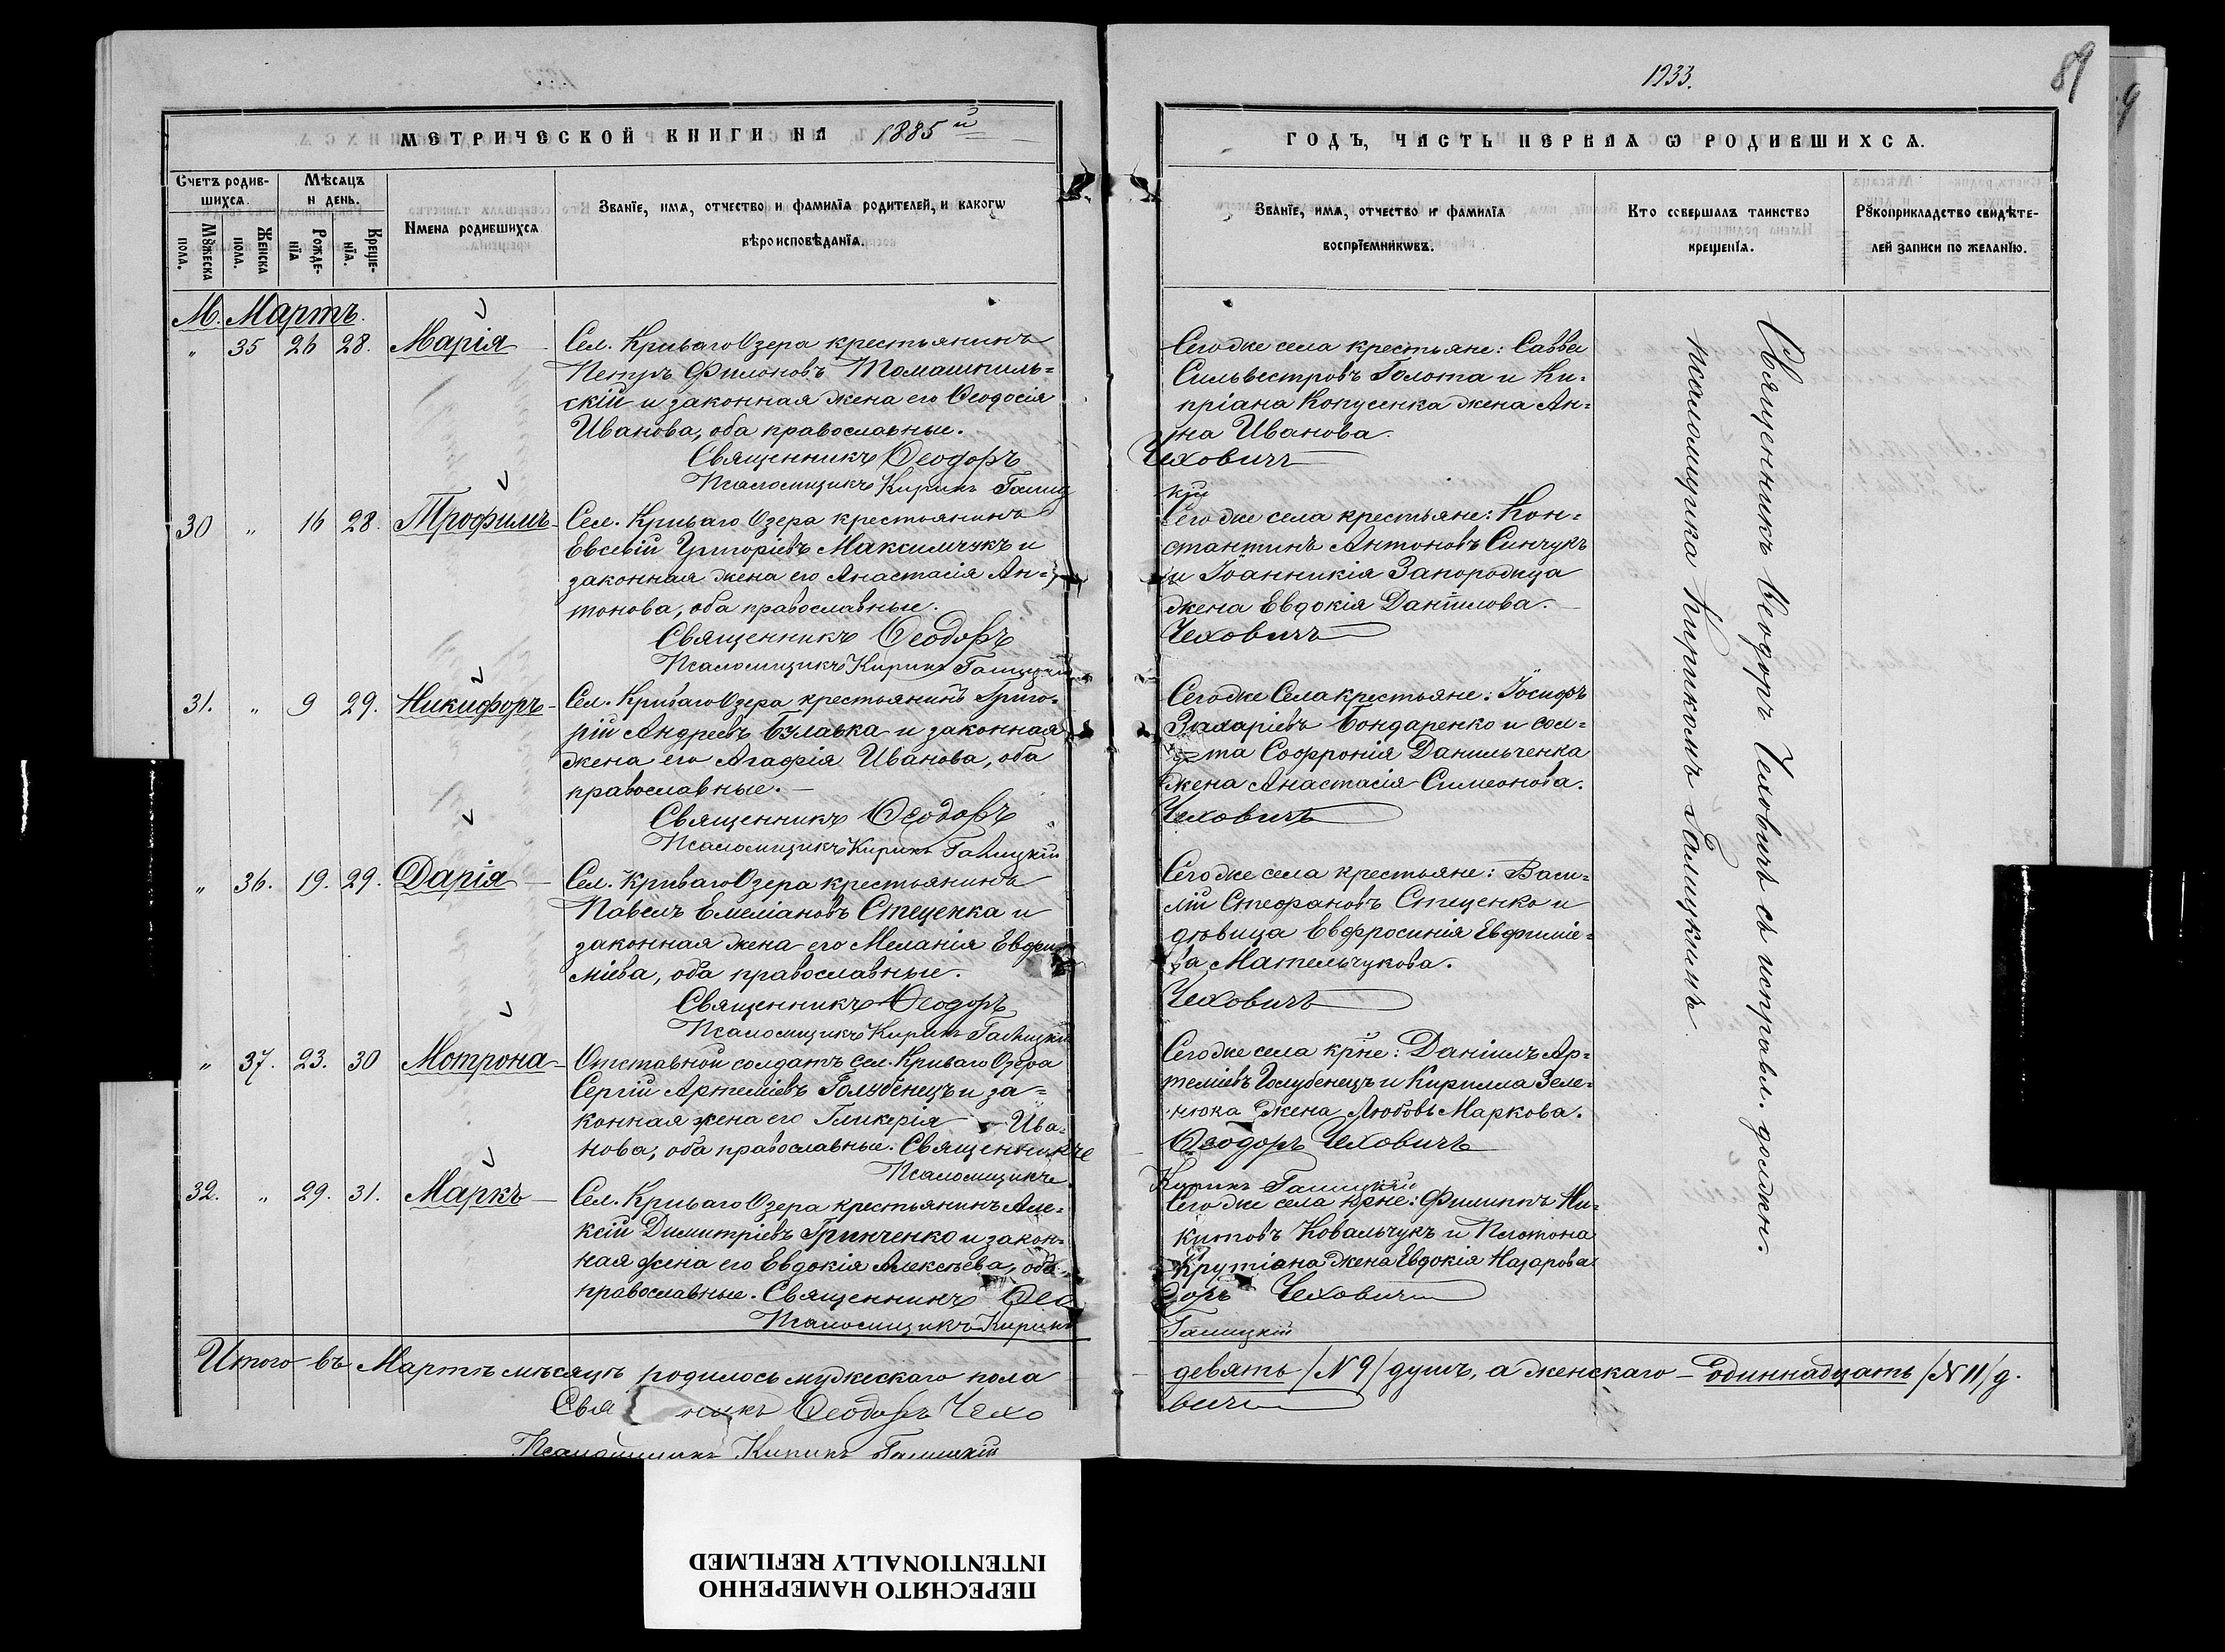 1233.
89
МЕТРИЧЕСКОЙ КНИГИ НА 1885й
ГОДЪ, ЧАСТЬ ПЕРВАЯ Ѡ РОДИВШИХСѦ.
Счетъ родив-
шихсѧ.
Мѣсѧцъ
и день.
Мꙋжеска
пола.
Женска
пола.
Рожде-
нїѧ
Креще-
нїѧ.
Имена родившихсѧ
Званїе, имѧ, отчество и фамилїѧ родителей, и какогѡ
вѣроисповѣданїѧ.
Званїе, имѧ, отчество и фамилїѧ
воспрїемникѡвъ.
Кто совершалъ таинство
крещенїѧ.
Рꙋкоприкладство свидѣте-
лей записи по желанїю.
М. Мартъ.
" 35 26 28. Марія
Сел. Криваго Озера крестьянинъ
Петръ Филоновъ Томашпиль=
скій и законная жена его Ѳеодосія
Иванова, оба православные.
Священникъ Ѳеодоръ
Псаломщикъ Кирикъ Галиц
Сегоже села крестьяне: Савва
Сильвестровъ Голота и Ки=
пріана Копусенка жена Ан=
на Иванова.
Чеховичъ
кій
30 " 16 28. Трофимъ
Сел. Криваго Озера крестьянинъ
Евсевій Григоріевъ Максимчукъ и
законная жена его Анастасія Ан=
тонова, оба православные.
Священникъ Ѳеодоръ
Псаломщикъ Кирикъ Галицкій
Сегоже села крестьяне: Кон=
стантинъ Антоновъ Синчукъ
и Іоанникія Запорожца
жена Евдокія Даніилова.
Чеховичъ
31. " 9 29. Никифоръ
Сел. Криваго Озера крестьянинъ Григо=
рій Андреевъ Булавка и законная
жена его Агафія Иванова, оба
православные.
Священникъ Ѳеодоръ
Псаломщикъ Кирикъ Галицкій
Сегоже Села крестьяне: Іосифъ
Захаріевъ Бондаренко и сол=
та Софронія Данильченка
жена Анастасія Симеонова.
Чеховичъ
" 36. 19. 29. Дарія
Сел. Криваго Озера крестьянинъ
Павелъ Емеліановъ Стеценка и
законная жена его Меланія Евфи
міева, оба православные.
Священникъ Ѳеодоръ
Псаломщикъ Кирикъ Галицкій
Сегоже села крестьяне: Васи=
лій Стефановъ Стеценко и
дѣвица Евфросинія Евфиміе=
ва Мательчукова.
Чеховичъ
" 37. 23. 30 Мотрона
Отставной солдатъ сел. Криваго Озера
Сергій Артеміевъ Голубенецъ и за=
конная жена его Гликерія Ива=
нова, оба православные. Священникъ
Псаломщикъ
Сегоже села кр̃не: Даніилъ Ар=
теміевъ Голубенецъ и Кирилла Зеле=
нюка жена Любовь Маркова.
Ѳеодоръ Чеховичъ
Кирикъ Галицкій
32. " 29. 31. Маркъ
Сел. Криваго Озера крестьянинъ Але=
ксій Димитріевъ Гринченко и закон=
ная жена его Евдокія Алексѣева, оба
православные. Священникъ Ѳео
Псаломщикъ Кирикъ
Сегоже села кр̃не: Филиппъ Ни=
китовъ Ковальчукъ и Платона
Крутіана жена Евдокія Назарова
доръ Чеховичъ
Галицкій
Священникъ Ѳеодоръ Чеховичъ съ исправл. должн.
псаломщика Кирикомъ Галицкимъ.
Итого въ Мартѣ мѣсяцѣ родилось мужескаго пола
девять /№ 9/ душъ, а женскаго – одиннадцать /№ 11/ д.
Свя никъ Ѳеодоръ Чехо
вичъ
Псаломщикъ Кирикъ Галицкій
ПЕРЕСНЯТО НАМЕРЕННО
INTENTIONALLY REFILMED